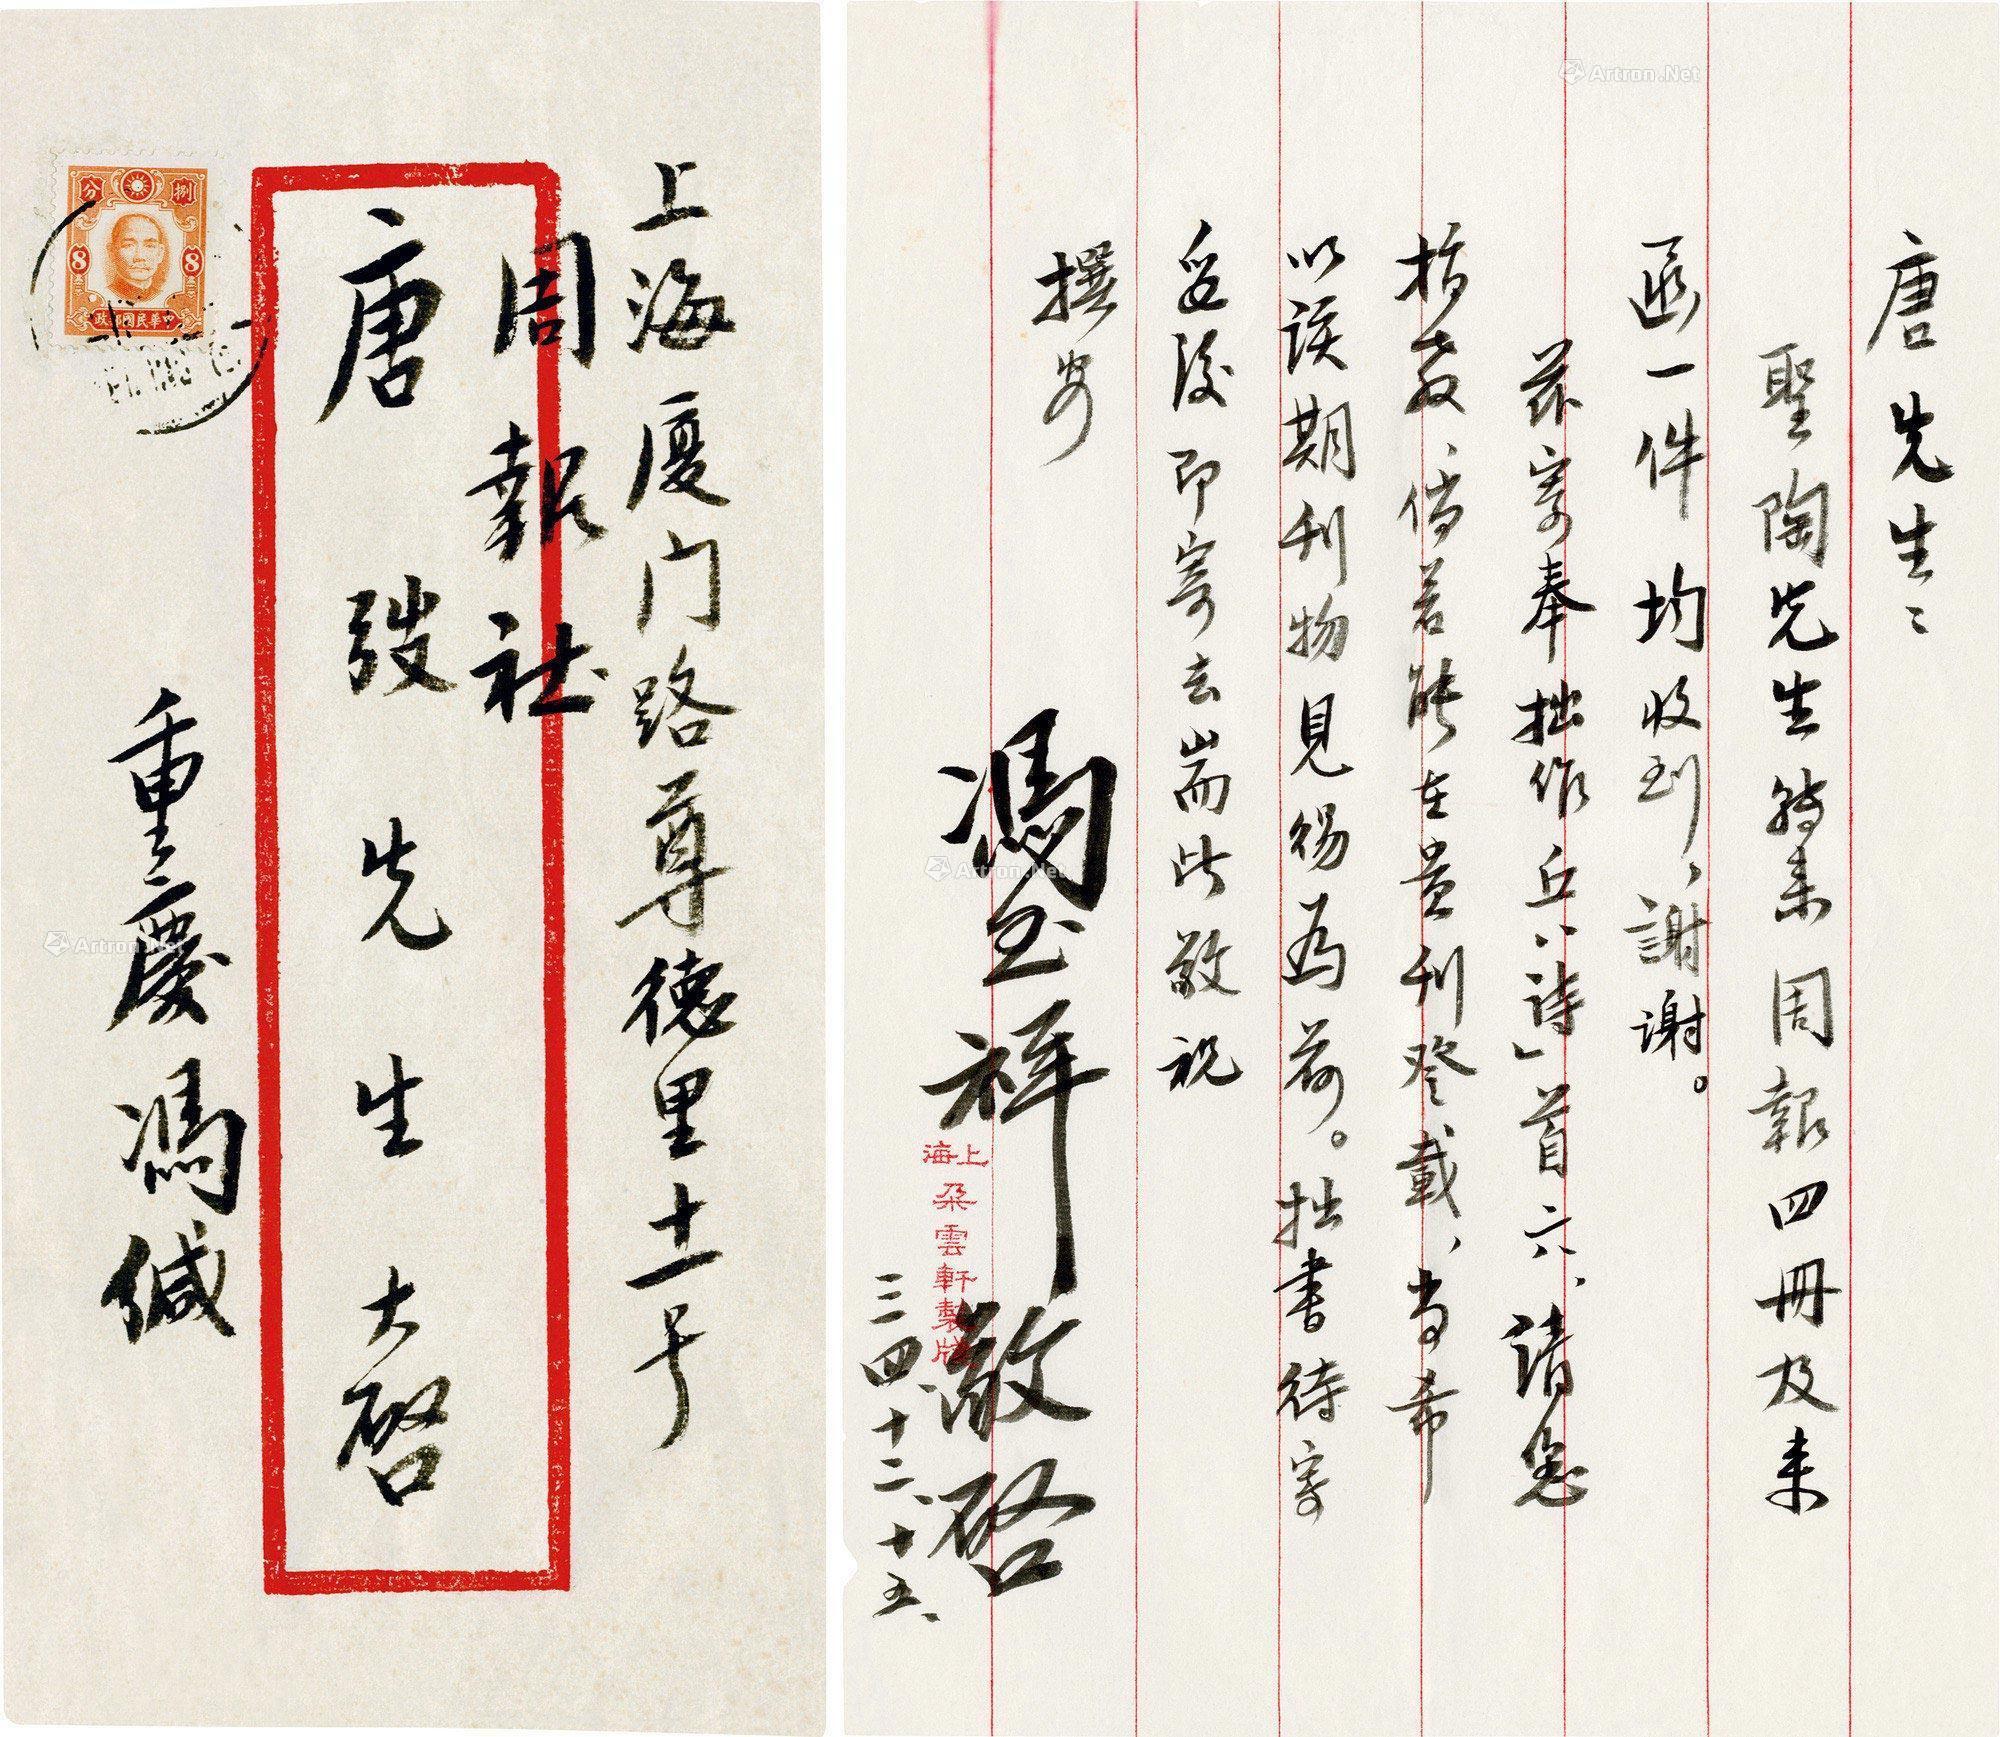 唐先生：
聖陶先生轉来周報四冊及来
函一件均收到、謝謝。
茲寄奉拙作丘八詩」首六、請您
指教、倘若能在貴刊登載、当希
以該期刊物見錫為荷。拙書待寄
妥後即寄去耑此敬祝
撰安
馮玉祥敬啓
上海朵雲軒製牋
三四、十二、十五、
上海厦门路尊德里十一号
周報社
唐弢先生大啓
重慶馮缄
捌分
8 8
中華民國郵政
Artron.Net
Artron.Net
Artron.Net